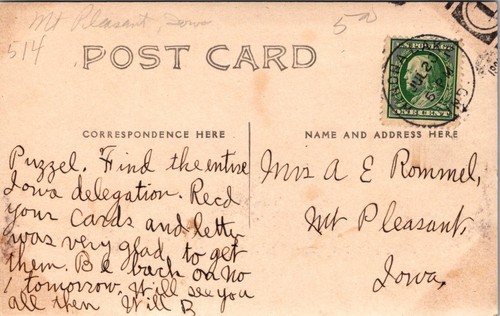 Mt Pleasant, Iowa
514
5a
POST CARD
U.S. POSTAGE
ONE CENT
CORRESPONDENCE HERE
NAME AND ADDRESS HERE
Puzzel. Find the entire
Iowa delegation. Recd
your cards and letter
was very glad to get
them. Be back on No
1 tomorrow. Will see you
all then Will B
Mrs A E Rommel,
Mt Pleasant,
Iowa.